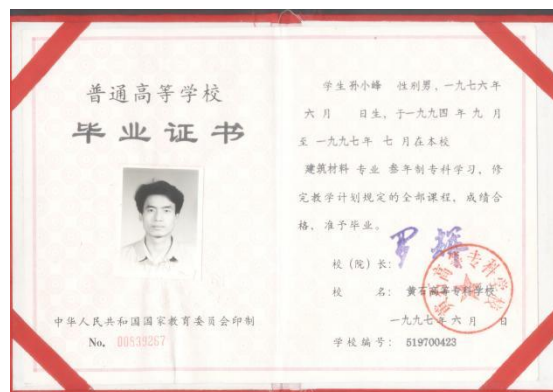 普通高等学校
毕业证书
中华人民共和国国家教育委员会印制
No. 00539267
学生孙小峰 性别男、一九七六年
六月 日生，于一九九四年九月
至一九九七年 七月在本校
建筑材料 专业 叁年制专科学习，修
完教学计划规定的全部课程，成绩合
格，准予毕业。
校（院）长：
校 名：黄石高等专科学校
一九九七年六月 日
学校编号：519700423